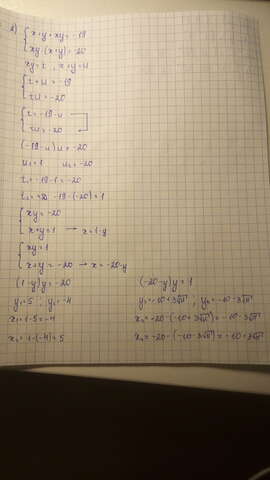 2) { x+y+xy = -19
xy(x+y) = -20
xy = t , x+y = u
{ t+u = -19
tu = -20
{ t = -19-u
tu = -20
(-19-u)u = -20
u₁ = 1 u₂ = -20
t₁ = -19-1 = -20
t₂ = -19-(-20) = 1
{ xy = -20
x+y = 1 → x = 1-y
{ xy = 1
x+y = -20 → x = -20-y
(1-y)y = -20 (-20-y)y = 1
y₁ = 5 , y₂ = -4 y₃ = -10+3√11 , y₄ = -10-3√11
x₁ = 1-5 = -4 x₃ = -20-(-10+3√11) = -10-3√11
x₂ = 1-(-4) = 5 x₄ = -20-(-10-3√11) = -10+3√11